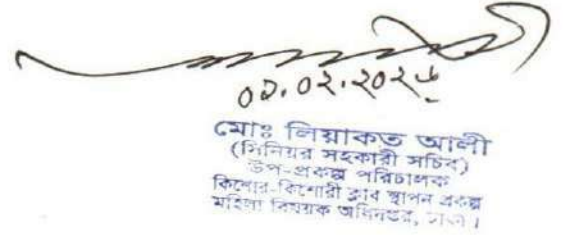 ০২.০২.২০২
মোঃ লিয়াকত আলী
(সিনিয়র সহকারী সচিব)
উপ-প্রকল্প পরিচালক
কিশোর-কিশোরী ক্লাব স্থাপন প্রকল্প
মহিলা বিষয়ক অধিদপ্তর, ঢাকা।